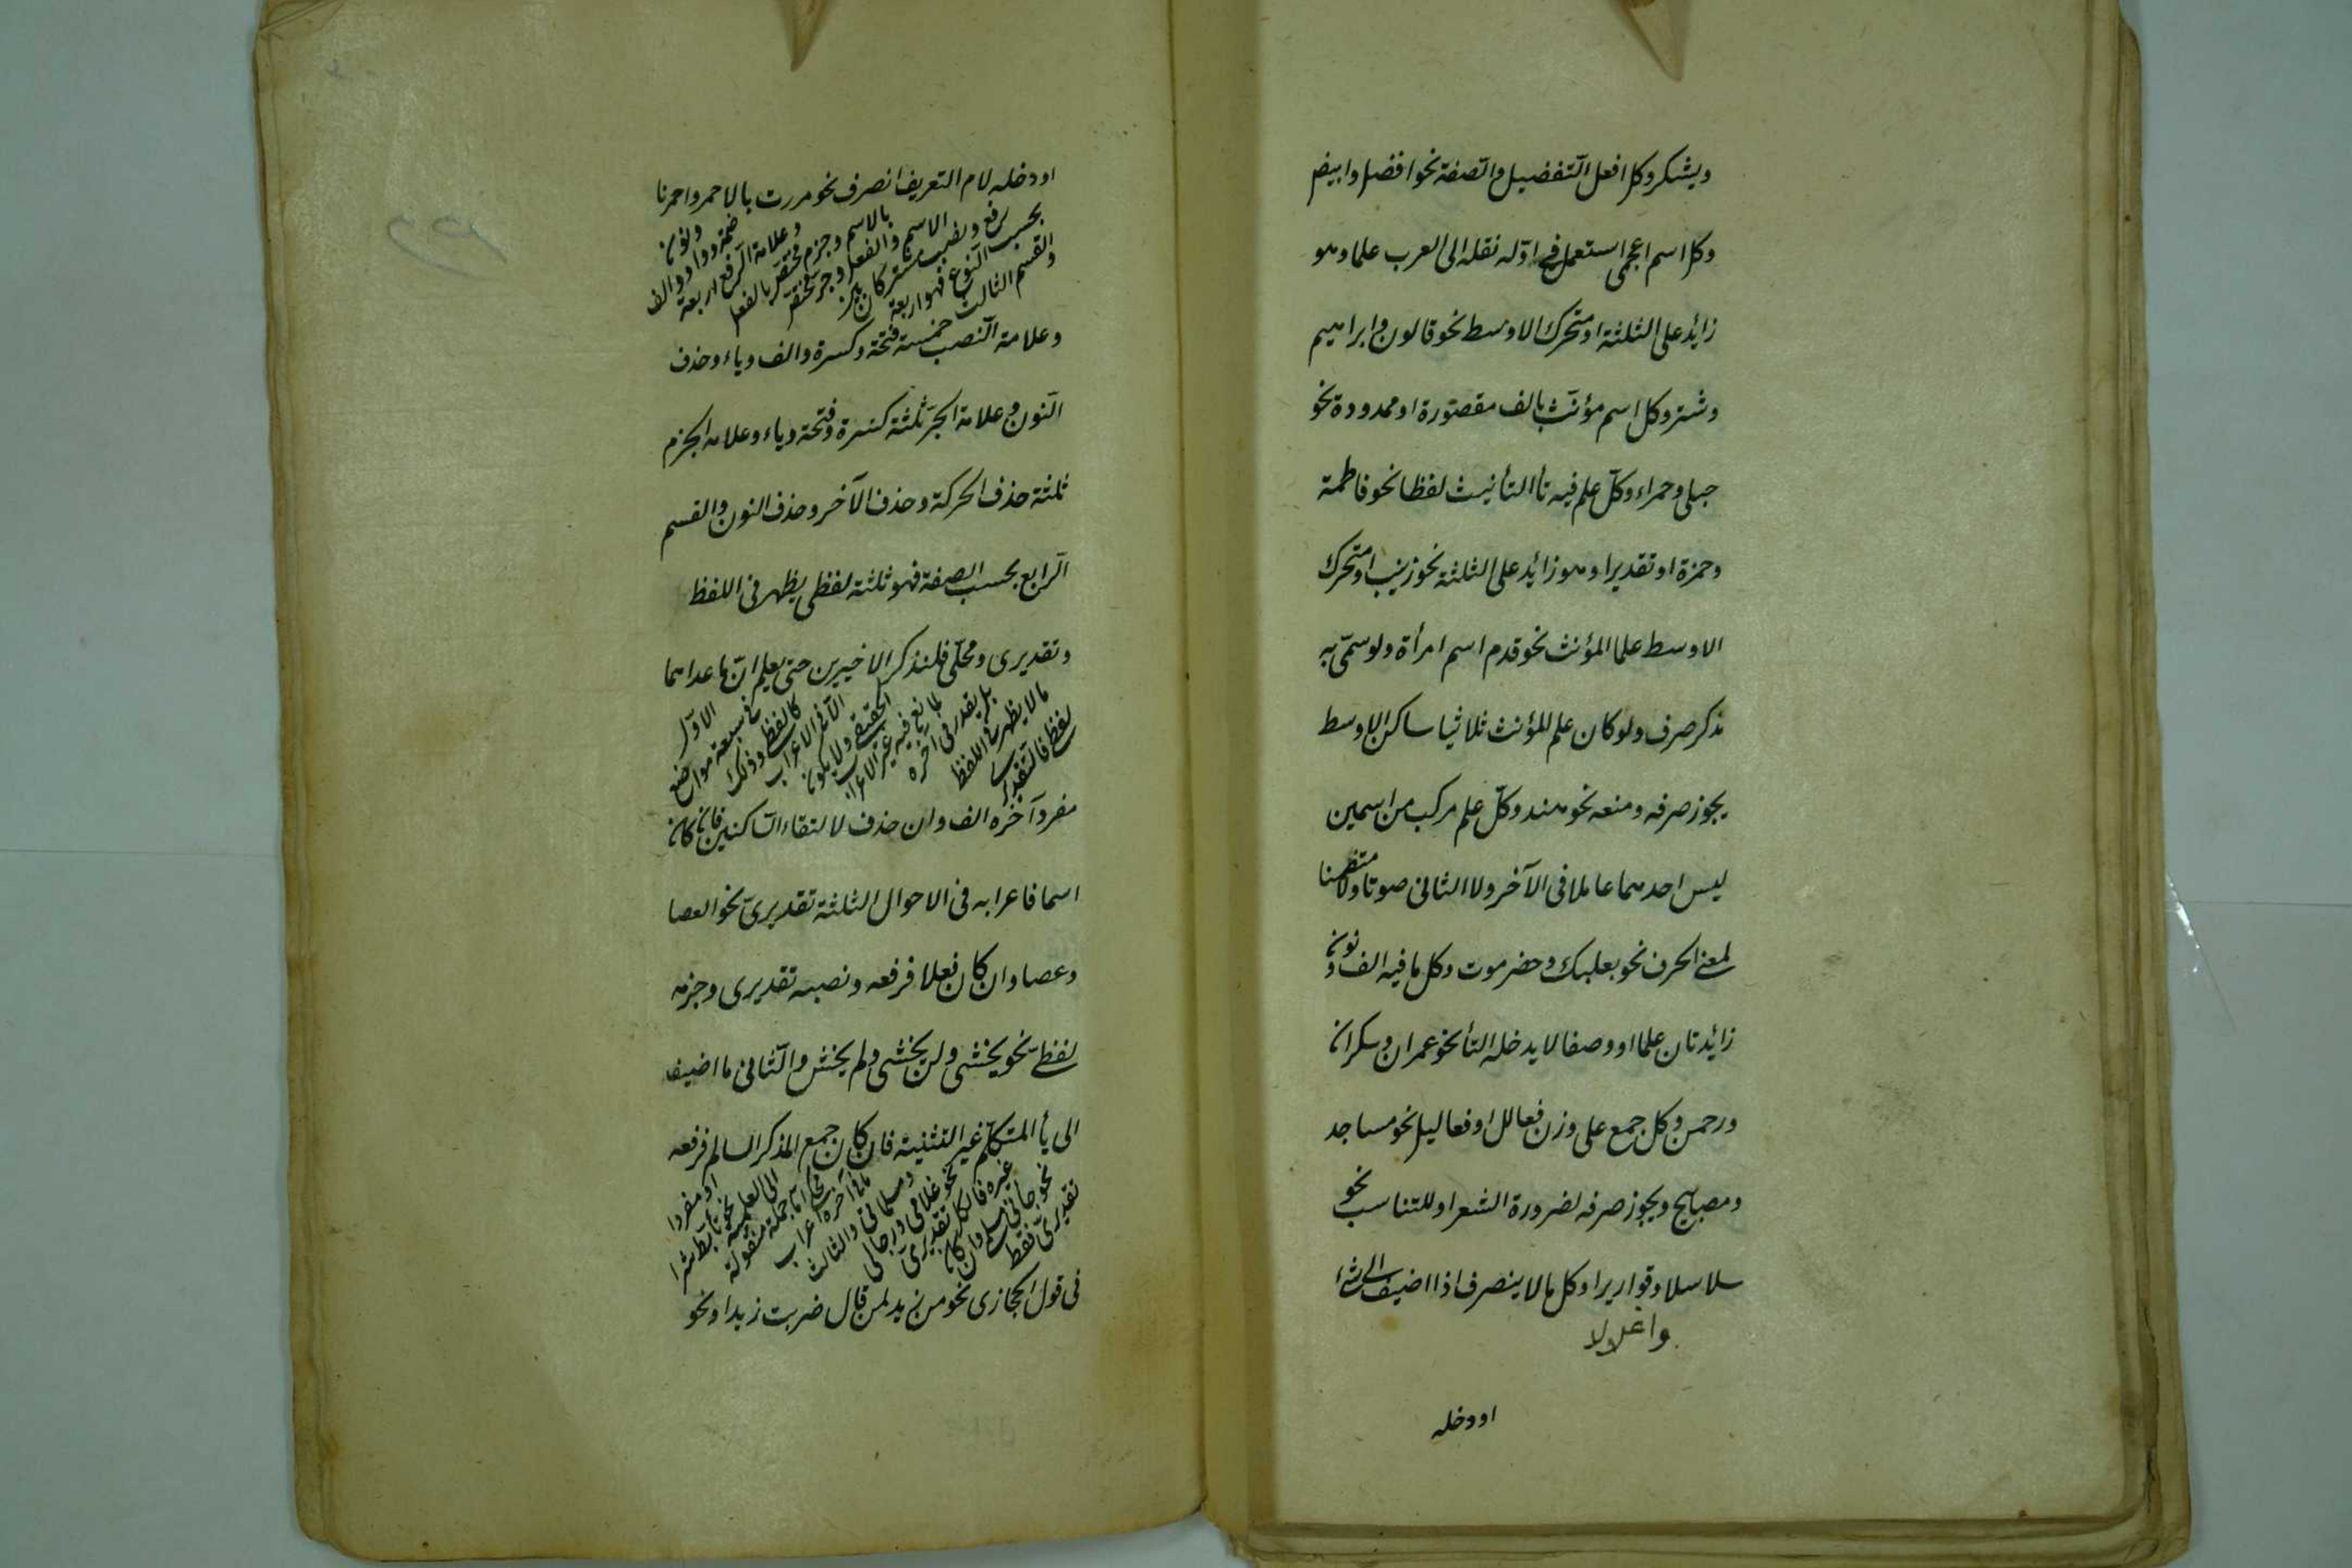 ويشكر وكل افعل التفضيل والصفة نحو افضل وابيض
وكل اسم اعجمى استعمل فى اوّله نقله الى العرب علما وهو
زائد على الثلثة او متحرك الاوسط نحو قالون وابراهيم
وشتر وكل اسم مؤنث بالف مقصورة او ممدودة نحو
حبلى وحمراء وكلّ علم فيه تأ التأنيث لفظا نحو فاطمة
وحمزة او تقديرا وهو زائد على الثلثة نحو زينب او متحرك
الاوسط علما لمؤنث نحو قدم اسم امرأة ولو سمّى به
مذكر صرف ولو كان علم المؤنث ثلاثيا ساكن الاوسط
يجوز صرفه ومنعه نحو هند وكلّ علم مركب من اسمين
ليس احدهما عاملا فى الآخر ولا الثانى صوتا ولا متضمنا
لمعنى الحرف نحو بعلبك وحضرموت وكل ما فيه الف ونون
زائدتان علما او وصفا لا يدخله التأ نحو عمران وسكران
ورحمن وكل جمع على وزن فعالل او فعاليل نحو مساجد
ومصابيح ويجوز صرفه لضرورة الشعر او للتناسب نحو
سلاسلا وقواريرا وكل ما لا ينصرف اذا اضيف الى شئ
واغلالا
او دخله
او دخله لام التعريف انصرف نحو مررت بالاحمر واحمرنا
والقسم الثالث
بحسب النوع فهو اربعة
رفع ونصب مشتركان بين
الاسم والفعل وجر مختص
بالاسم وجزم مختص بالفعل
وعلامة الرفع اربعة
ضمة وواو والف
ونون
وعلامة النصب خمسة فتحة وكسرة والف وياء وحذف
النون وعلامة الجرّ ثلثة كسرة وفتحة وياء وعلامة الجزم
ثلثة حذف الحركة وحذف الآخر وحذف النون والقسم
الرابع بحسب الصفة فهو ثلثة لفظى يظهر فى اللفظ
وتقديرى ومحلّى فلنذكر الاخيرين حتى يعلم انّ ما عداهما
لفظى فالتقديرى
ما لا يظهر فى اللفظ
بل يقدر فى آخره
لمانع فيه غير الاعراب
الحقيقى ولا يكون
الا فى الاعراب
كاللفظى وذلك
فى سبعة مواضع
الاوّل
مفرد آخره الف وان حذف لالتقاء الساكنين فان كان
اسما فاعرابه فى الاحوال الثلثة تقديرىّ نحو العصا
وعصا وان كان فعلا فرفعه ونصبه تقديرى وجزمه
لفظىّ نحو يخشى ولن يخشى ولم يخش والثانى ما اضيف
الى يأ المتكلّم غير التثنية فان كان جمع المذكر السالم فرفعه
تقديرىّ فقط
نحو جأنى مسلمى وان كان
غيره فالكل تقديرىّ
نحو غلامى ورجالى
ومسلماتى والثالث
ما فى آخره اعراب
محكى اما جملة منقولة
الى العلمية نحو تأبط شرا
او مفردا
فى قول الحجازى نحو من زيدا لمن قال ضربت زيدا ونحو